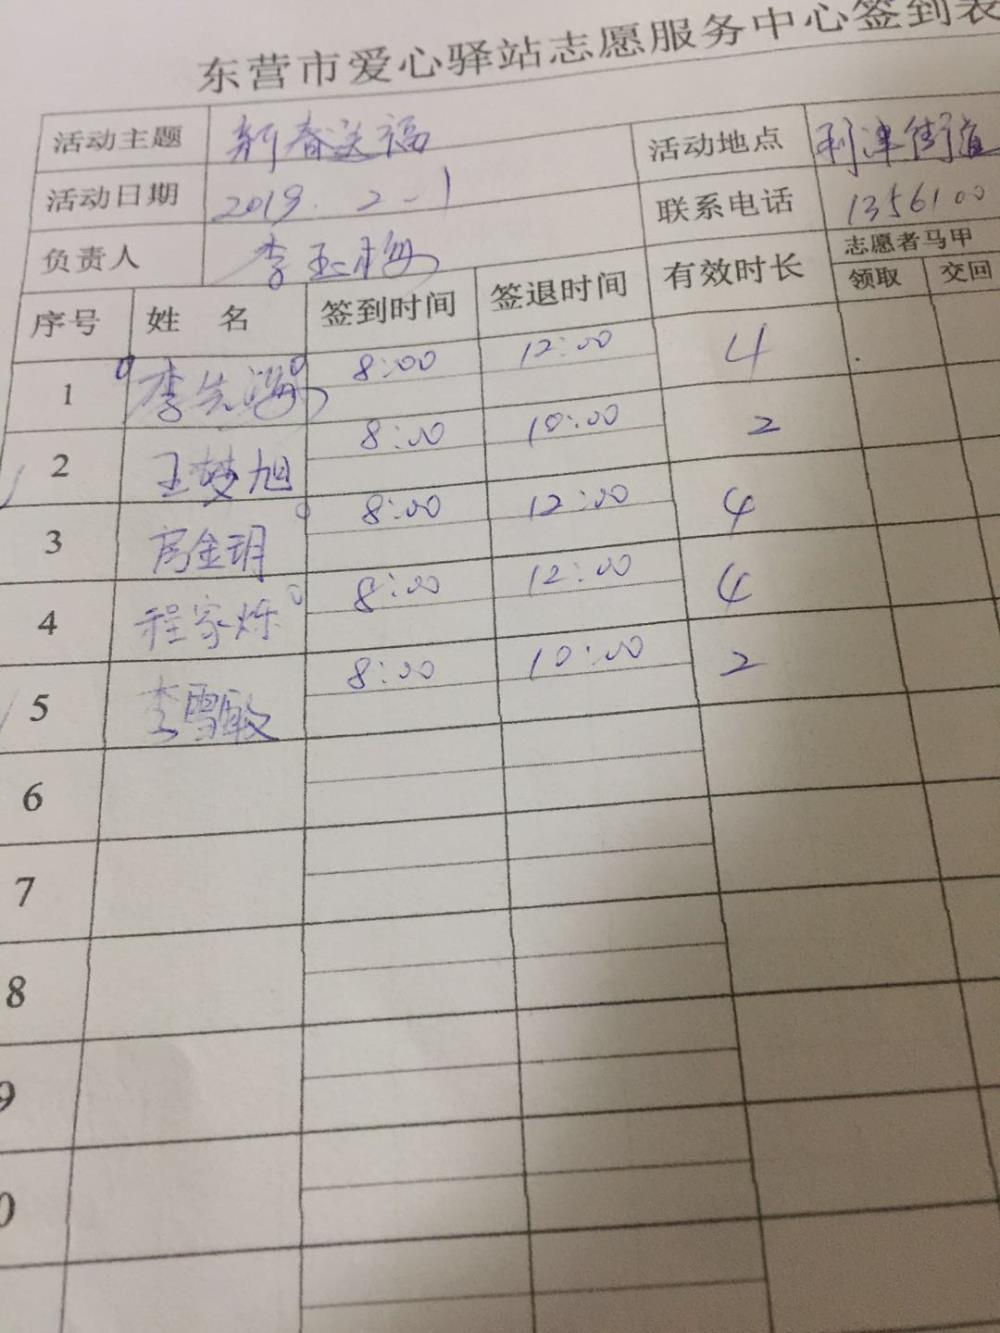 东营市爱心驿站志愿服务中心签到表
活动主题 新春送福 活动地点 利津街道
活动日期 2019.2-1 联系电话 1356100
负责人 李玉梅 有效时长 志愿者马甲
序号 姓 名 签到时间 签退时间 领取 交回
1 李先海 8:00 12:00 4
2 王梦旭 8:00 10:00 2
3 房金玥 8:00 12:00 4
4 程家烁 8:00 12:00 4
5 李雪敏 8:00 10:00 2
6
7
8
9
0